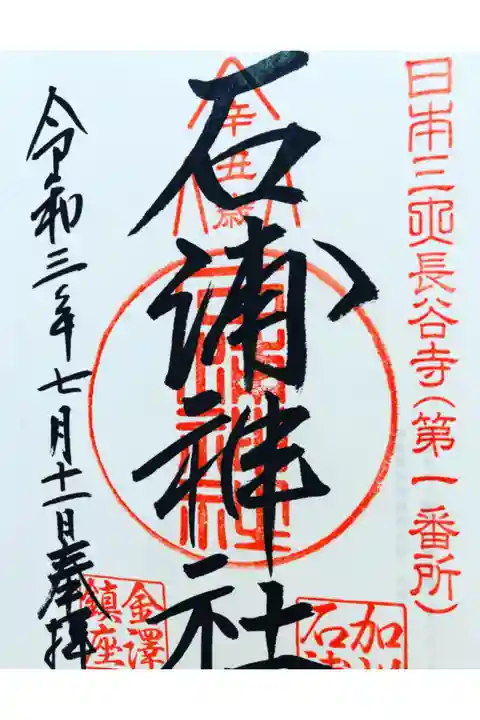 日本三大長谷寺(第一番所)
辛丑歳
石浦神社
加
石浦
令和三年七月十一日奉拝
金澤
鎮座